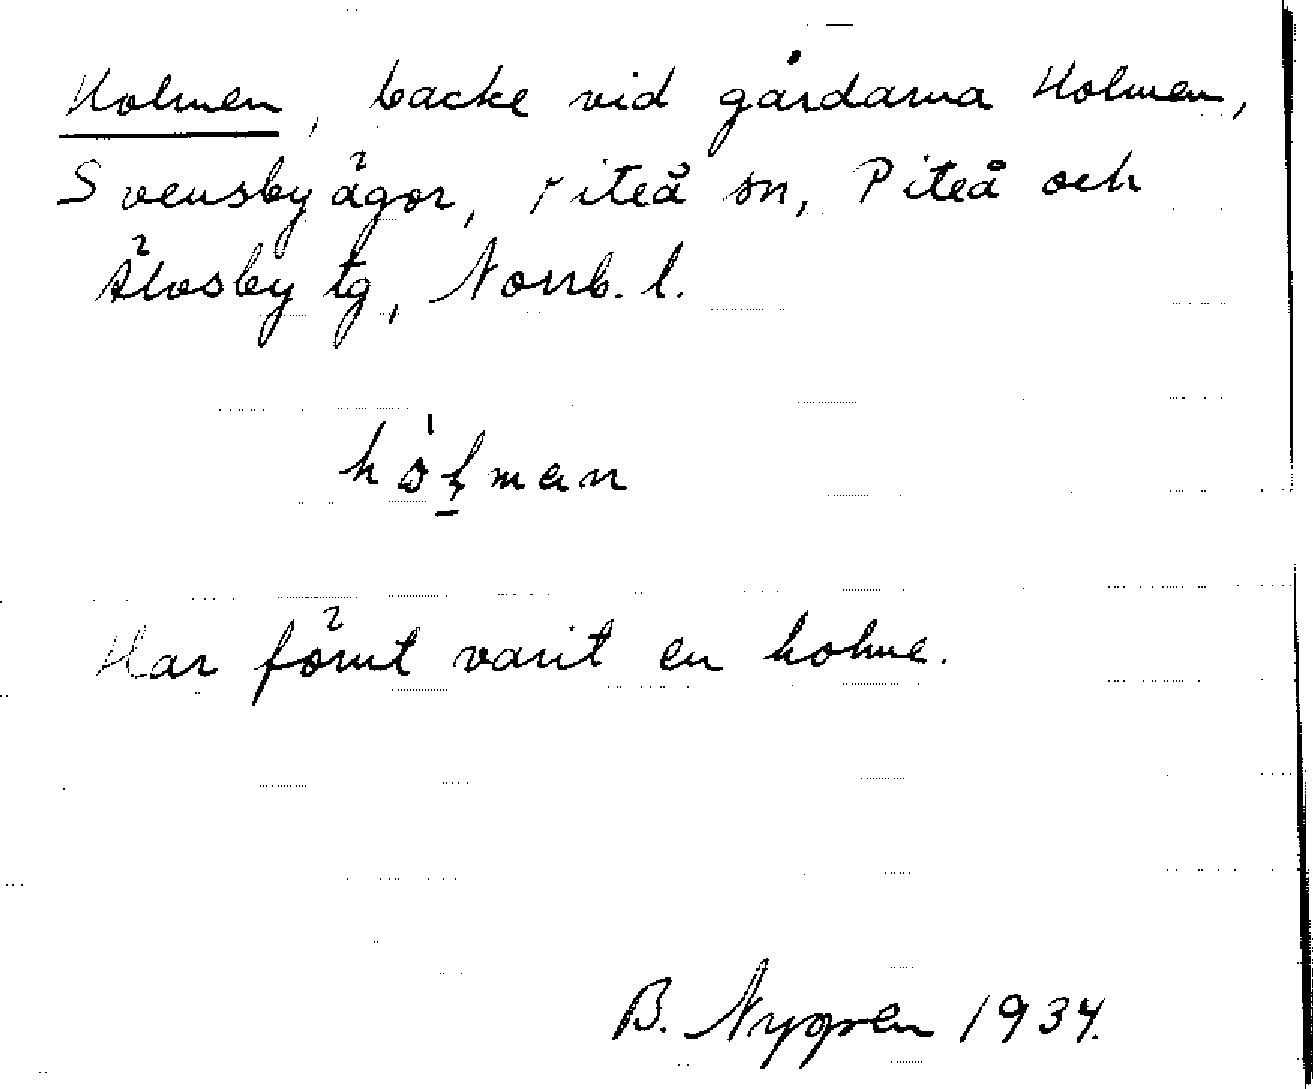 Holmen, backe vid gårdarna Holmen,
Svensby ägor, Piteå sn, Piteå och
Älvsby tg, Norrb. l.
Har förut varit en holme.
B. Nygren 1934.